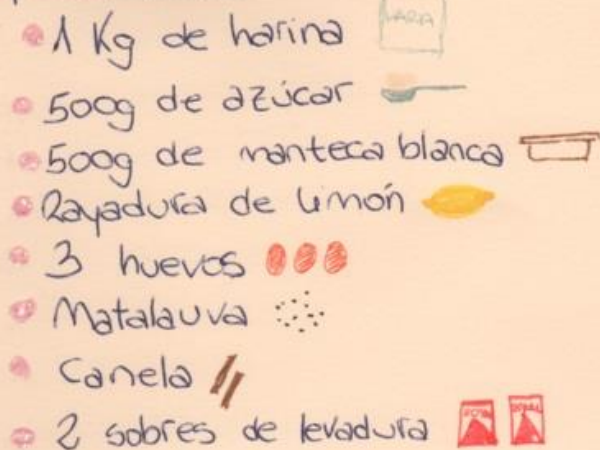 1 Kg de harina
500g de azúcar
500g de manteca blanca
Rayadura de limón
3 huevos
Matalauva
Canela
2 sobres de levadura